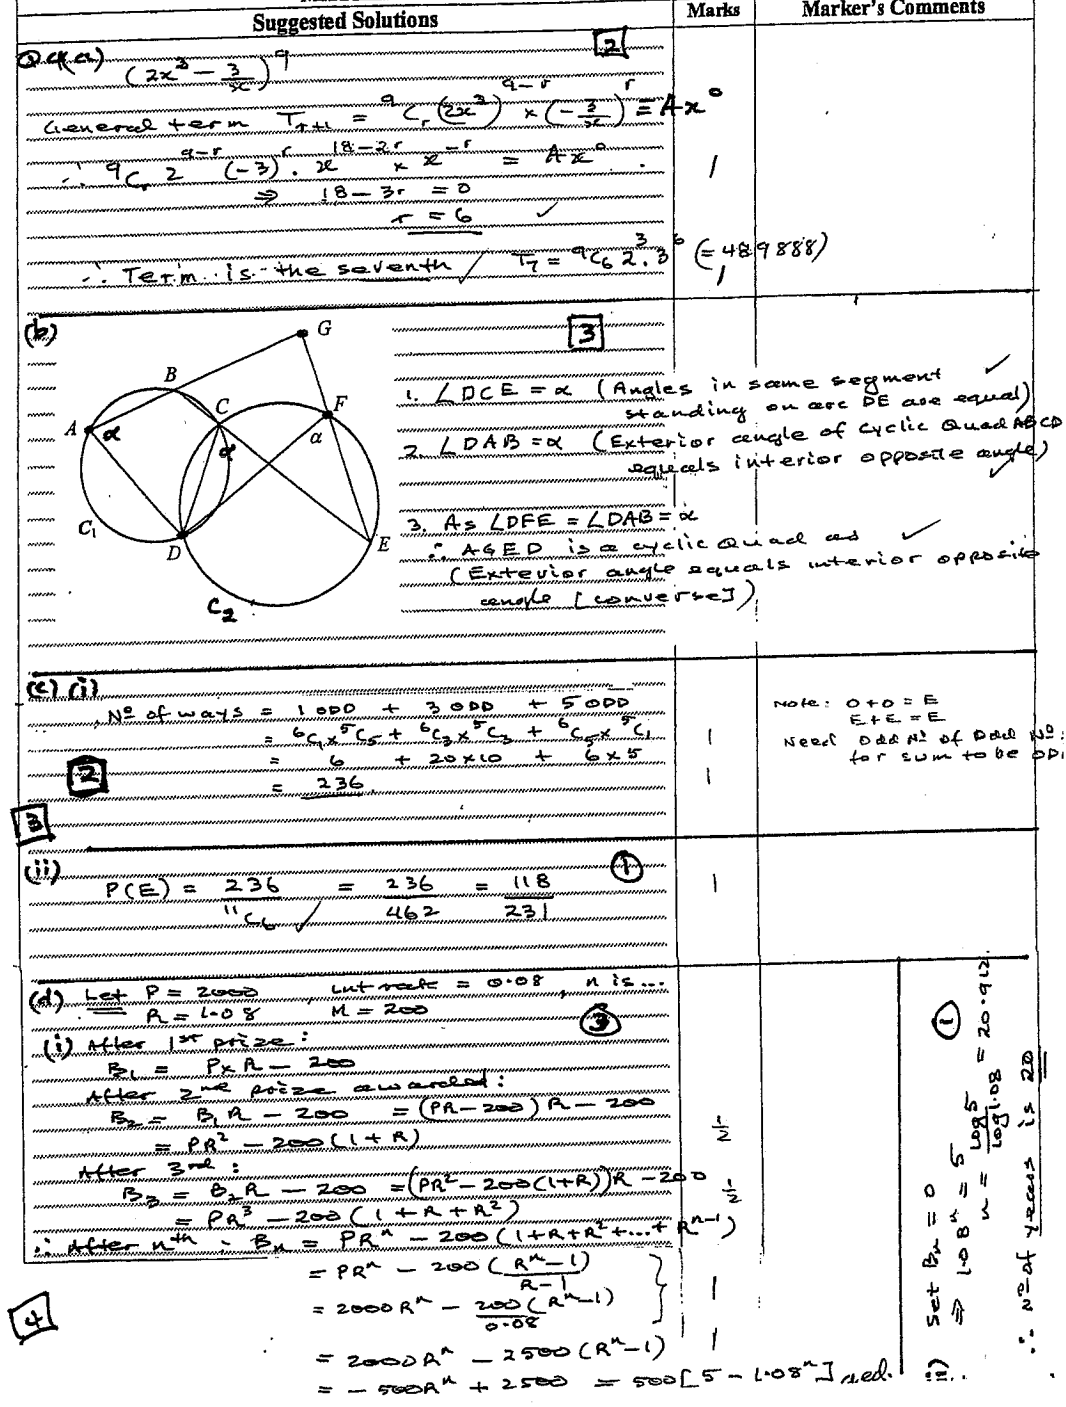 Suggested Solutions
Marks
Marker's Comments
Q4(a) (2x² − 3/x)⁹
2
General term T_{r+1} = ⁹C_r (2x²)^{9−r} × (−3/x)^r = Ax⁰
∴ ⁹C_r 2^{9−r} (−3)^r . x^{18−2r} × x^{−r} = Ax⁰.
1
⇒ 18 − 3r = 0
r = 6 ✓
∴ Term is the seventh / T₇ = ⁹C₆ 2³.3⁶ (= 489888)
1
(b)
3
G
B
A
α
C
α
F
α
C₁
D
E
C₂
1. ∠DCE = α (Angles in same segment ✓
standing on arc DE are equal)
2. ∠DAB = α (Exterior angle of cyclic Quad ABCD
equals interior opposite angle) ✓
3. As ∠DFE = ∠DAB = α
∴ AGED is a cyclic Quad as ✓
(Exterior angle equals interior opposite
angle [converse])
(c) (i)
Nº of ways = 1 ODD + 3 ODD + 5 ODD
= ⁶C₁×⁵C₅ + ⁶C₃×⁵C₃ + ⁶C₅×⁵C₁
1
= 6 + 20×10 + 6×5
= 236
1
2
3
Note: O+O = E
E+E = E
Need Odd Nº of Odd Nº:
for sum to be ODD
(ii)
1
P(E) = 236/¹¹C₆ ✓ = 236/462 = 118/231
1
(d) Let P = 2000, Int rate = 0.08, n is...
R = 1.08 M = 200
3
(i) After 1st prize:
B₁ = P×R − 200
After 2nd prize awarded:
B₂ = B₁R − 200 = (PR − 200)R − 200
= PR² − 200(1+R)
½
After 3rd:
B₃ = B₂R − 200 = (PR² − 200(1+R))R − 200
½
= PR³ − 200(1+R+R²)
∴ After nth: Bₙ = PRⁿ − 200(1+R+R²+...+R^{n−1})
= PRⁿ − 200((Rⁿ−1)/(R−1))
= 2000Rⁿ − 200(Rⁿ−1)/0.08
1
= 2000Rⁿ − 2500(Rⁿ−1)
1
= −500Rⁿ + 2500 = 500[5 − 1.08ⁿ] qed.
4
ii) Set Bₙ = 0
1
⇒ 1.08ⁿ = 5
n = log 5/log 1.08 = 20.912
∴ Nº of years is 20